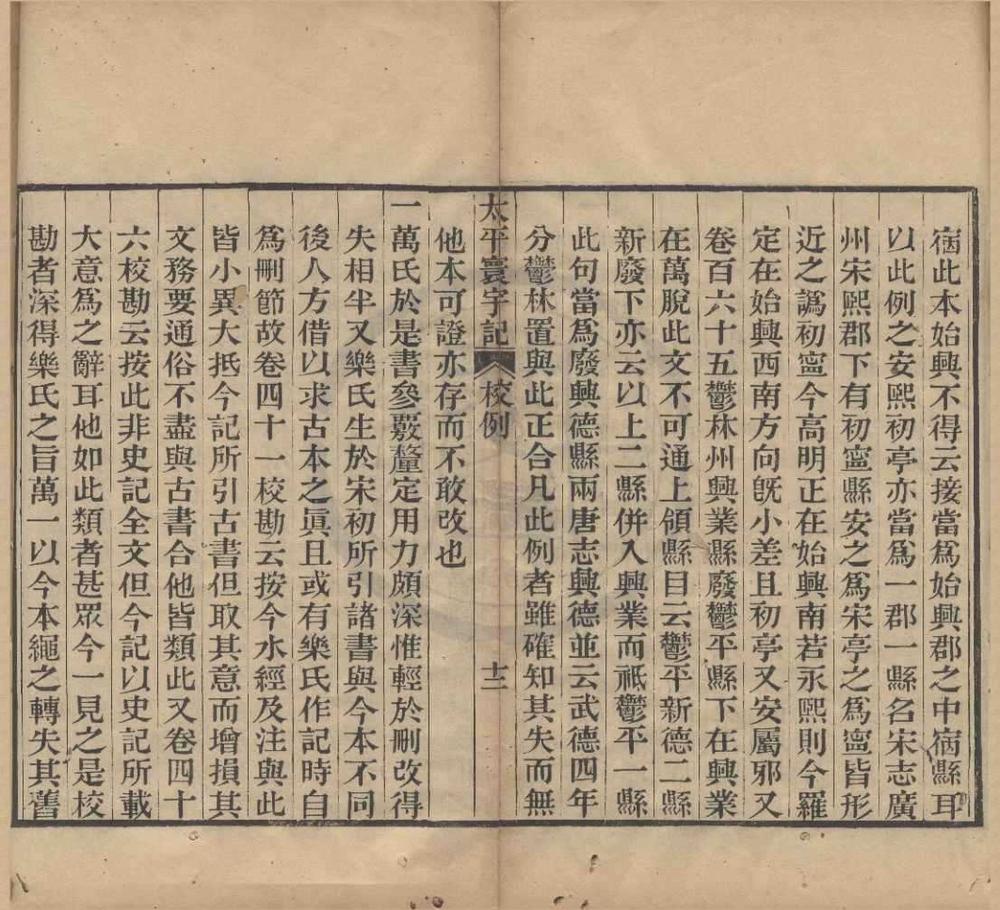 宿此本始興不得云接當爲始興郡之中宿縣耳
以此例之安熙初亭亦當爲一郡一縣名宋志廣
州宋熙郡下有初寧縣安之爲宋亭之爲寧皆形
近之譌初寧今高明正在始興南若永熙則今羅
定在始興西南方向旣小差且初亭又安屬邪又
卷百六十五鬱林州興業縣廢鬱平縣下在興業
在萬脫此文不可通上領縣目云鬱平新德二縣
新廢下亦云以上二縣併入興業而祗鬱平一縣
此句當爲廢興德縣兩唐志興德並云武德四年
分鬱林置與此正合凡此例者雖確知其失而無
太平寰宇記 校例 十二
他本可證亦存而不敢改也
一萬氏於是書參覈釐定用力頗深惟輕於刪改得
失相半又樂氏生於宋初所引諸書與今本不同
後人方借以求古本之眞且或有樂氏作記時自
爲刪節故卷四十一校勘云按今水經及注與此
皆小異大抵今記所引古書但取其意而增損其
文務要通俗不盡與古書合他皆類此又卷四十
六校勘云按此非史記全文但今記以史記所載
大意爲之辭耳他如此類者甚眾今一見之是校
勘者深得樂氏之旨萬一以今本繩之轉失其舊